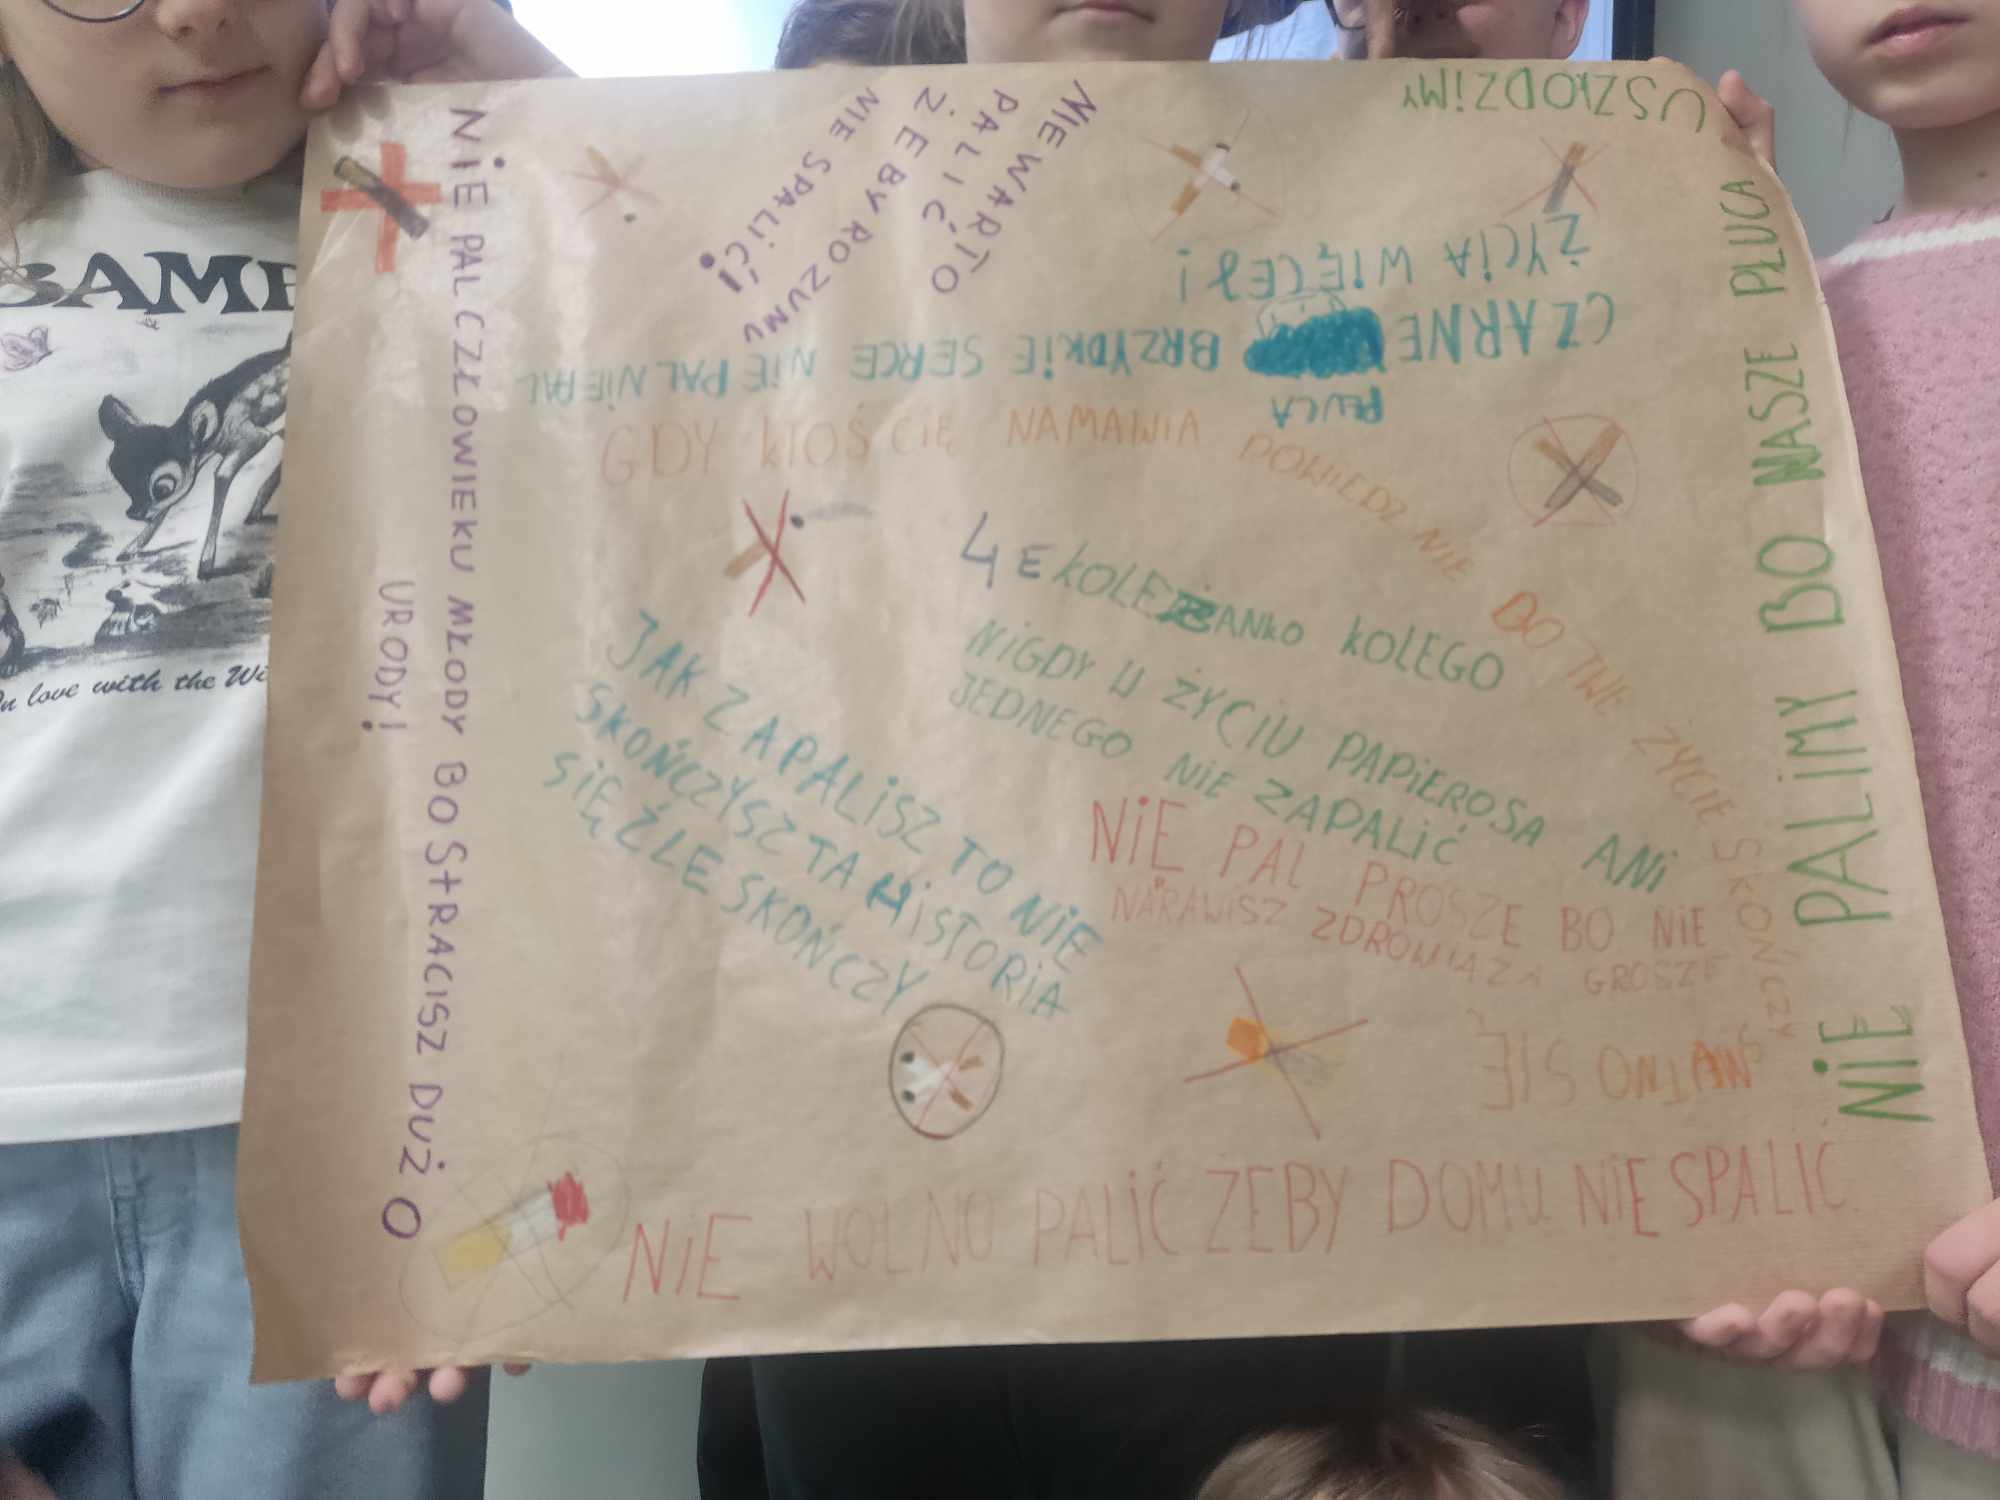 BAMB
In love with the Wi
NIE PAL CZŁOWIEKU MŁODY BO STRACISZ DUŻO
URODY!
NIE WARTO
PALIĆ
ŻEBY ROZUMU
NIE SPALIĆ!
USZKODZIMY
NIE PALIMY BO NASZE PŁUCA
CZARNE BRZYDKIE SERCE NIE PAL NIE PAL
PŁUCA
ŻYCIA WIĘCEJ!
GDY KTOŚ CIĘ NAMAWIA POWIEDZ NIE BO TWE ŻYCIE SKOŃCZY
SMUTNO SIĘ
4 E KOLEŻANKO KOLEGO
NIGDY W ŻYCIU PAPIEROSA ANI
JEDNEGO NIE ZAPALIĆ
JAK ZAPALISZ TO NIE
SKOŃCZYSZ TA HISTORIA
SIĘ ŹLE SKOŃCZY
NIE PAL PROSZE BO NIE
NAPRAWISZ ZDROWIA ZA GROSZE
NIE WOLNO PALIĆ ŻEBY DOMU NIE SPALIĆ.